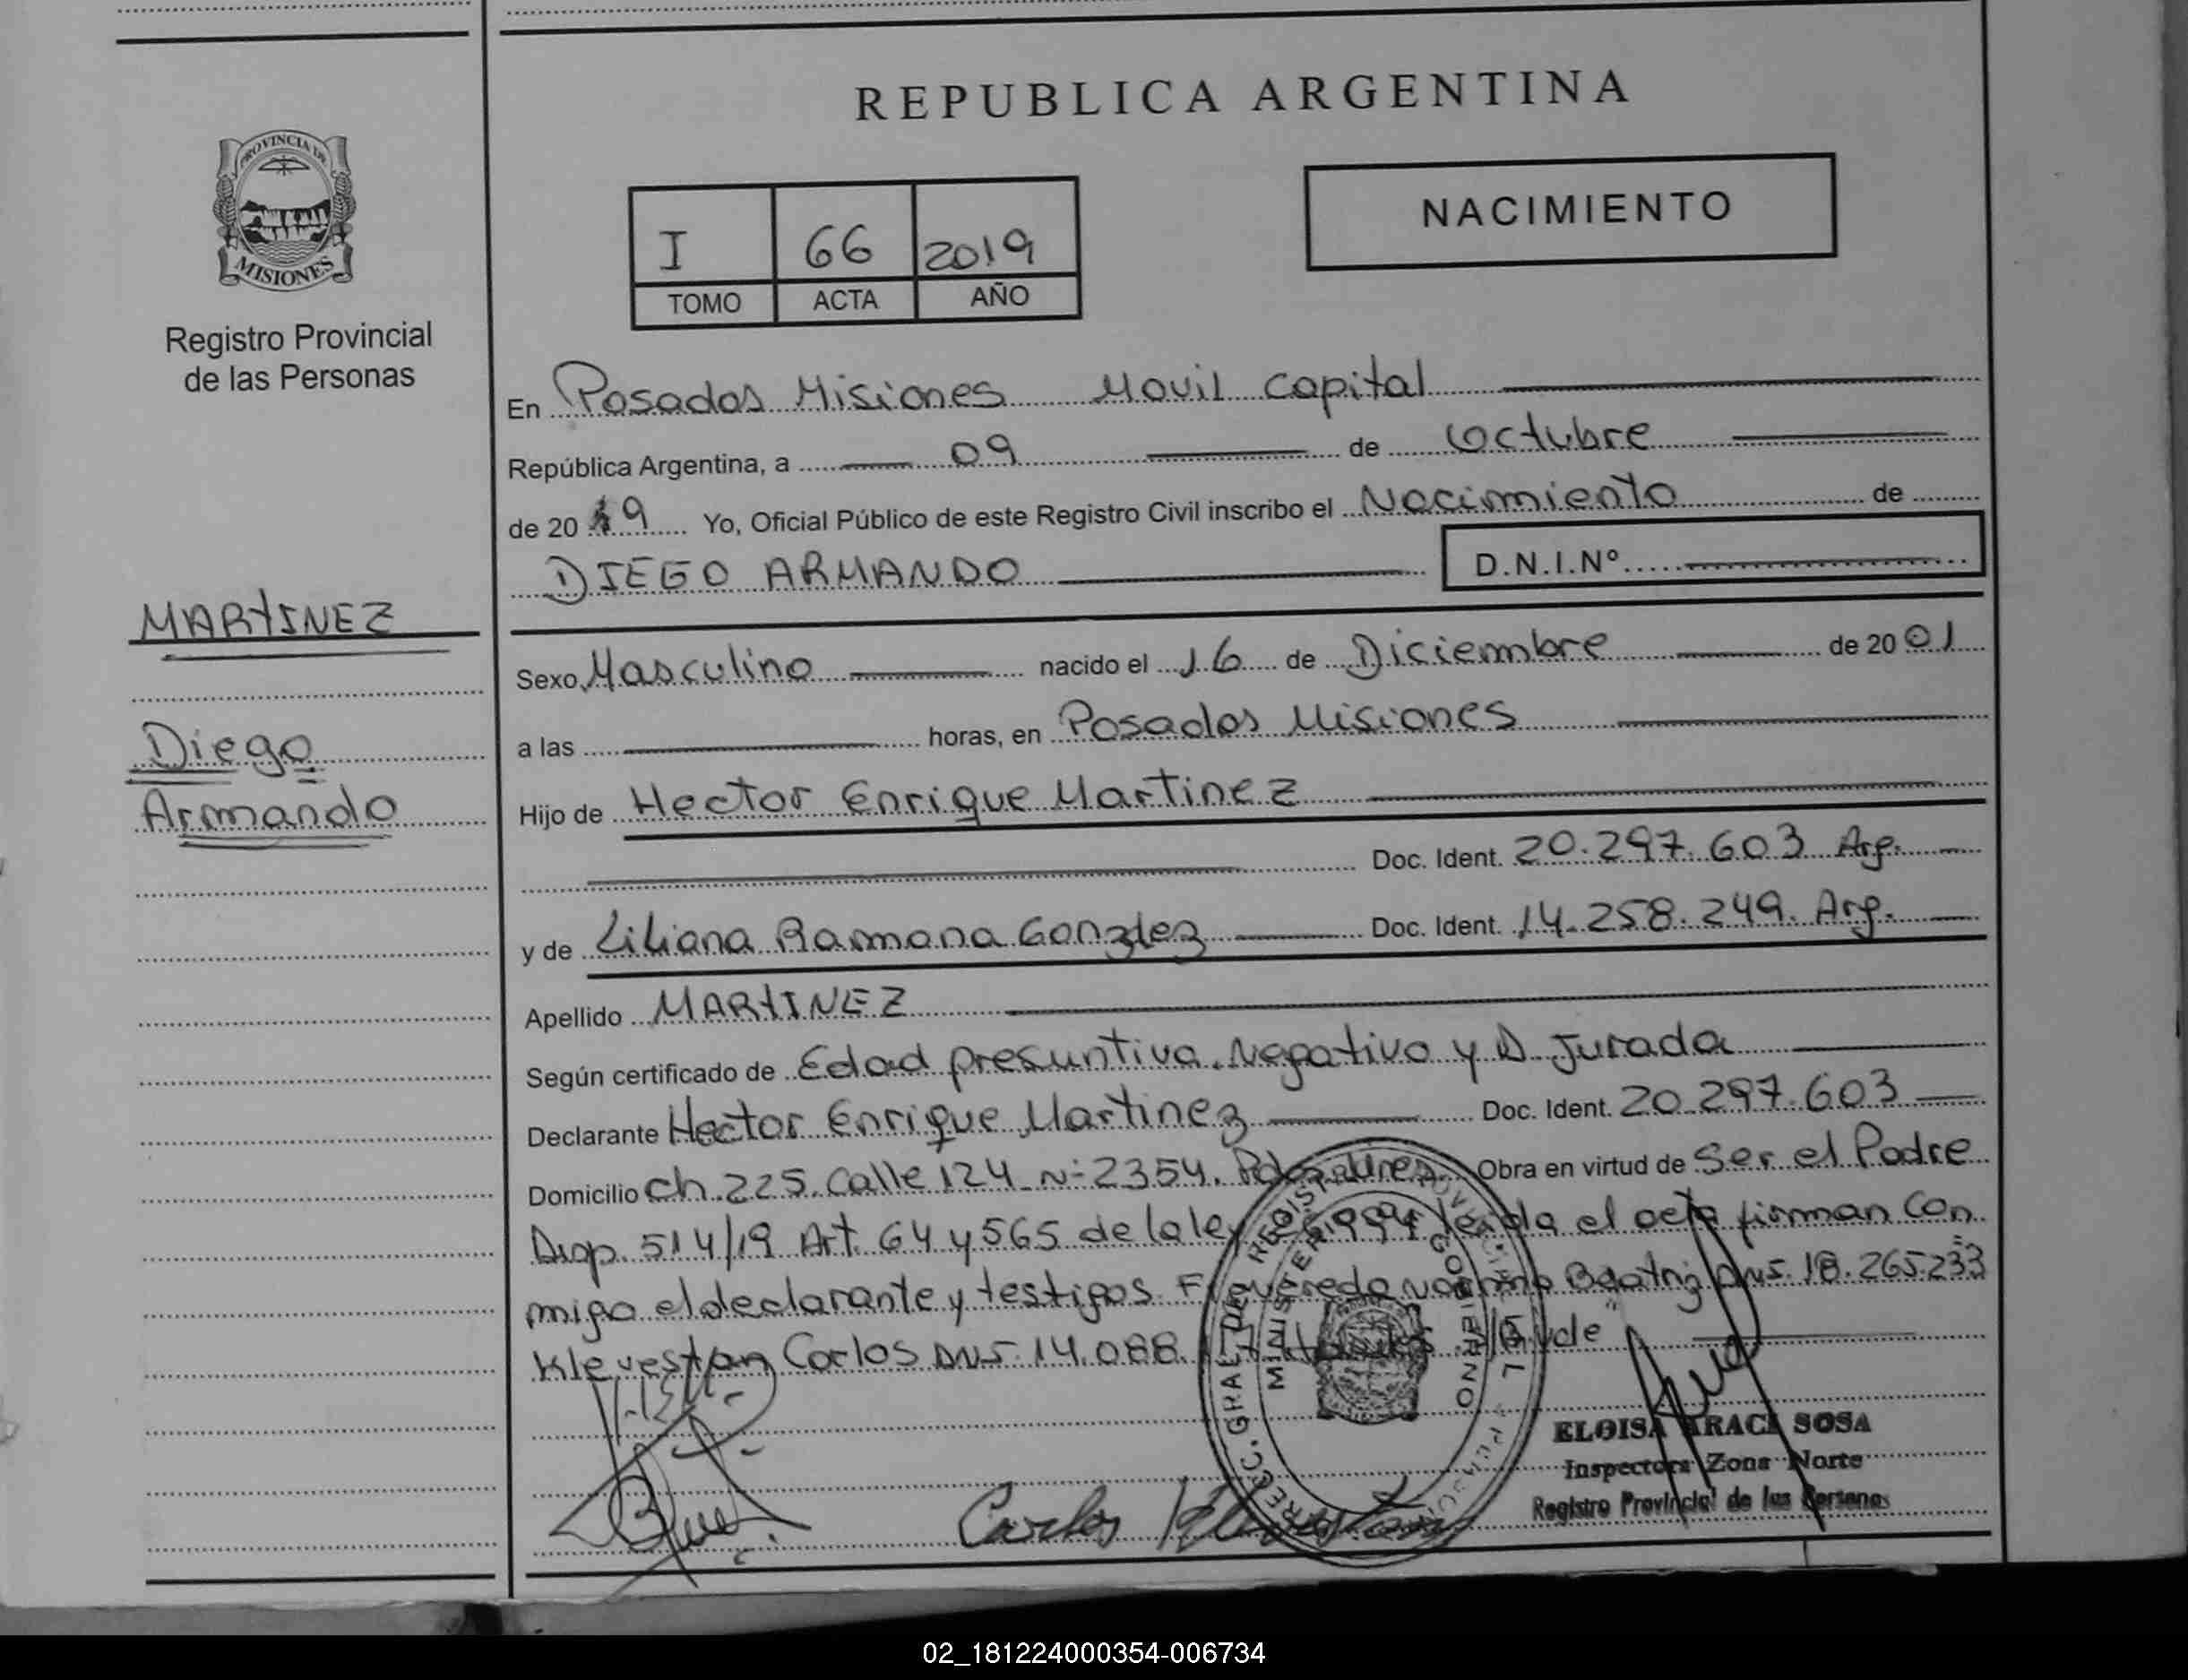 REPUBLICA ARGENTINA
PROVINCIA DE MISIONES
Registro Provincial
de las Personas
NACIMIENTO
I 66 2019
TOMO ACTA AÑO
En Posadas Misiones Movil Capital
República Argentina, a 09 de Octubre
de 2019 Yo, Oficial Público de este Registro Civil inscribo el Nacimiento de
DIEGO ARMANDO D.N.I.Nº
MARTINEZ
Diego
Armando
Sexo Masculino nacido el 16 de Diciembre de 2001
a las horas, en Posadas Misiones
Hijo de Hector Enrique Martinez
Doc. Ident. 20.297.603 Arg.
y de Liliana Ramona Gonzlez Doc. Ident. 14.258.249. Arg.
Apellido MARTINEZ
Según certificado de Edad presuntiva. Negativo y D. Jurada
Declarante Hector Enrique Martinez Doc. Ident. 20.297.603
Domicilio Ch. 225. Calle 124 N: 2354. Obra en virtud de Ser el Padre
Disp. 514/19 Art. 64 y 565 de la ley leida el acta firman con
migo el declarante y testigos. Beatriz DNI. 18.265.233
Carlos DNI 14.088.
ELOISA ARACI SOSA
Inspectora Zona Norte
Registro Provincial de las Personas
Carlos
02_181224000354-006734